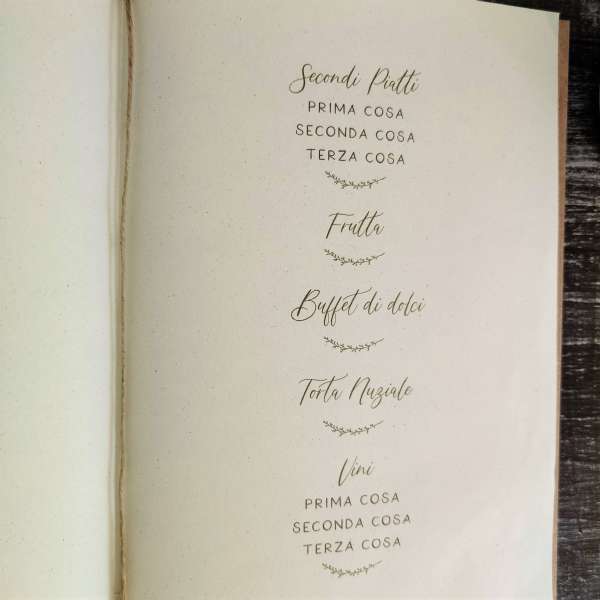 Secondi Piatti
PRIMA COSA
SECONDA COSA
TERZA COSA
Frutta
Buffet di dolci
Torta Nuziale
Vini
PRIMA COSA
SECONDA COSA
TERZA COSA